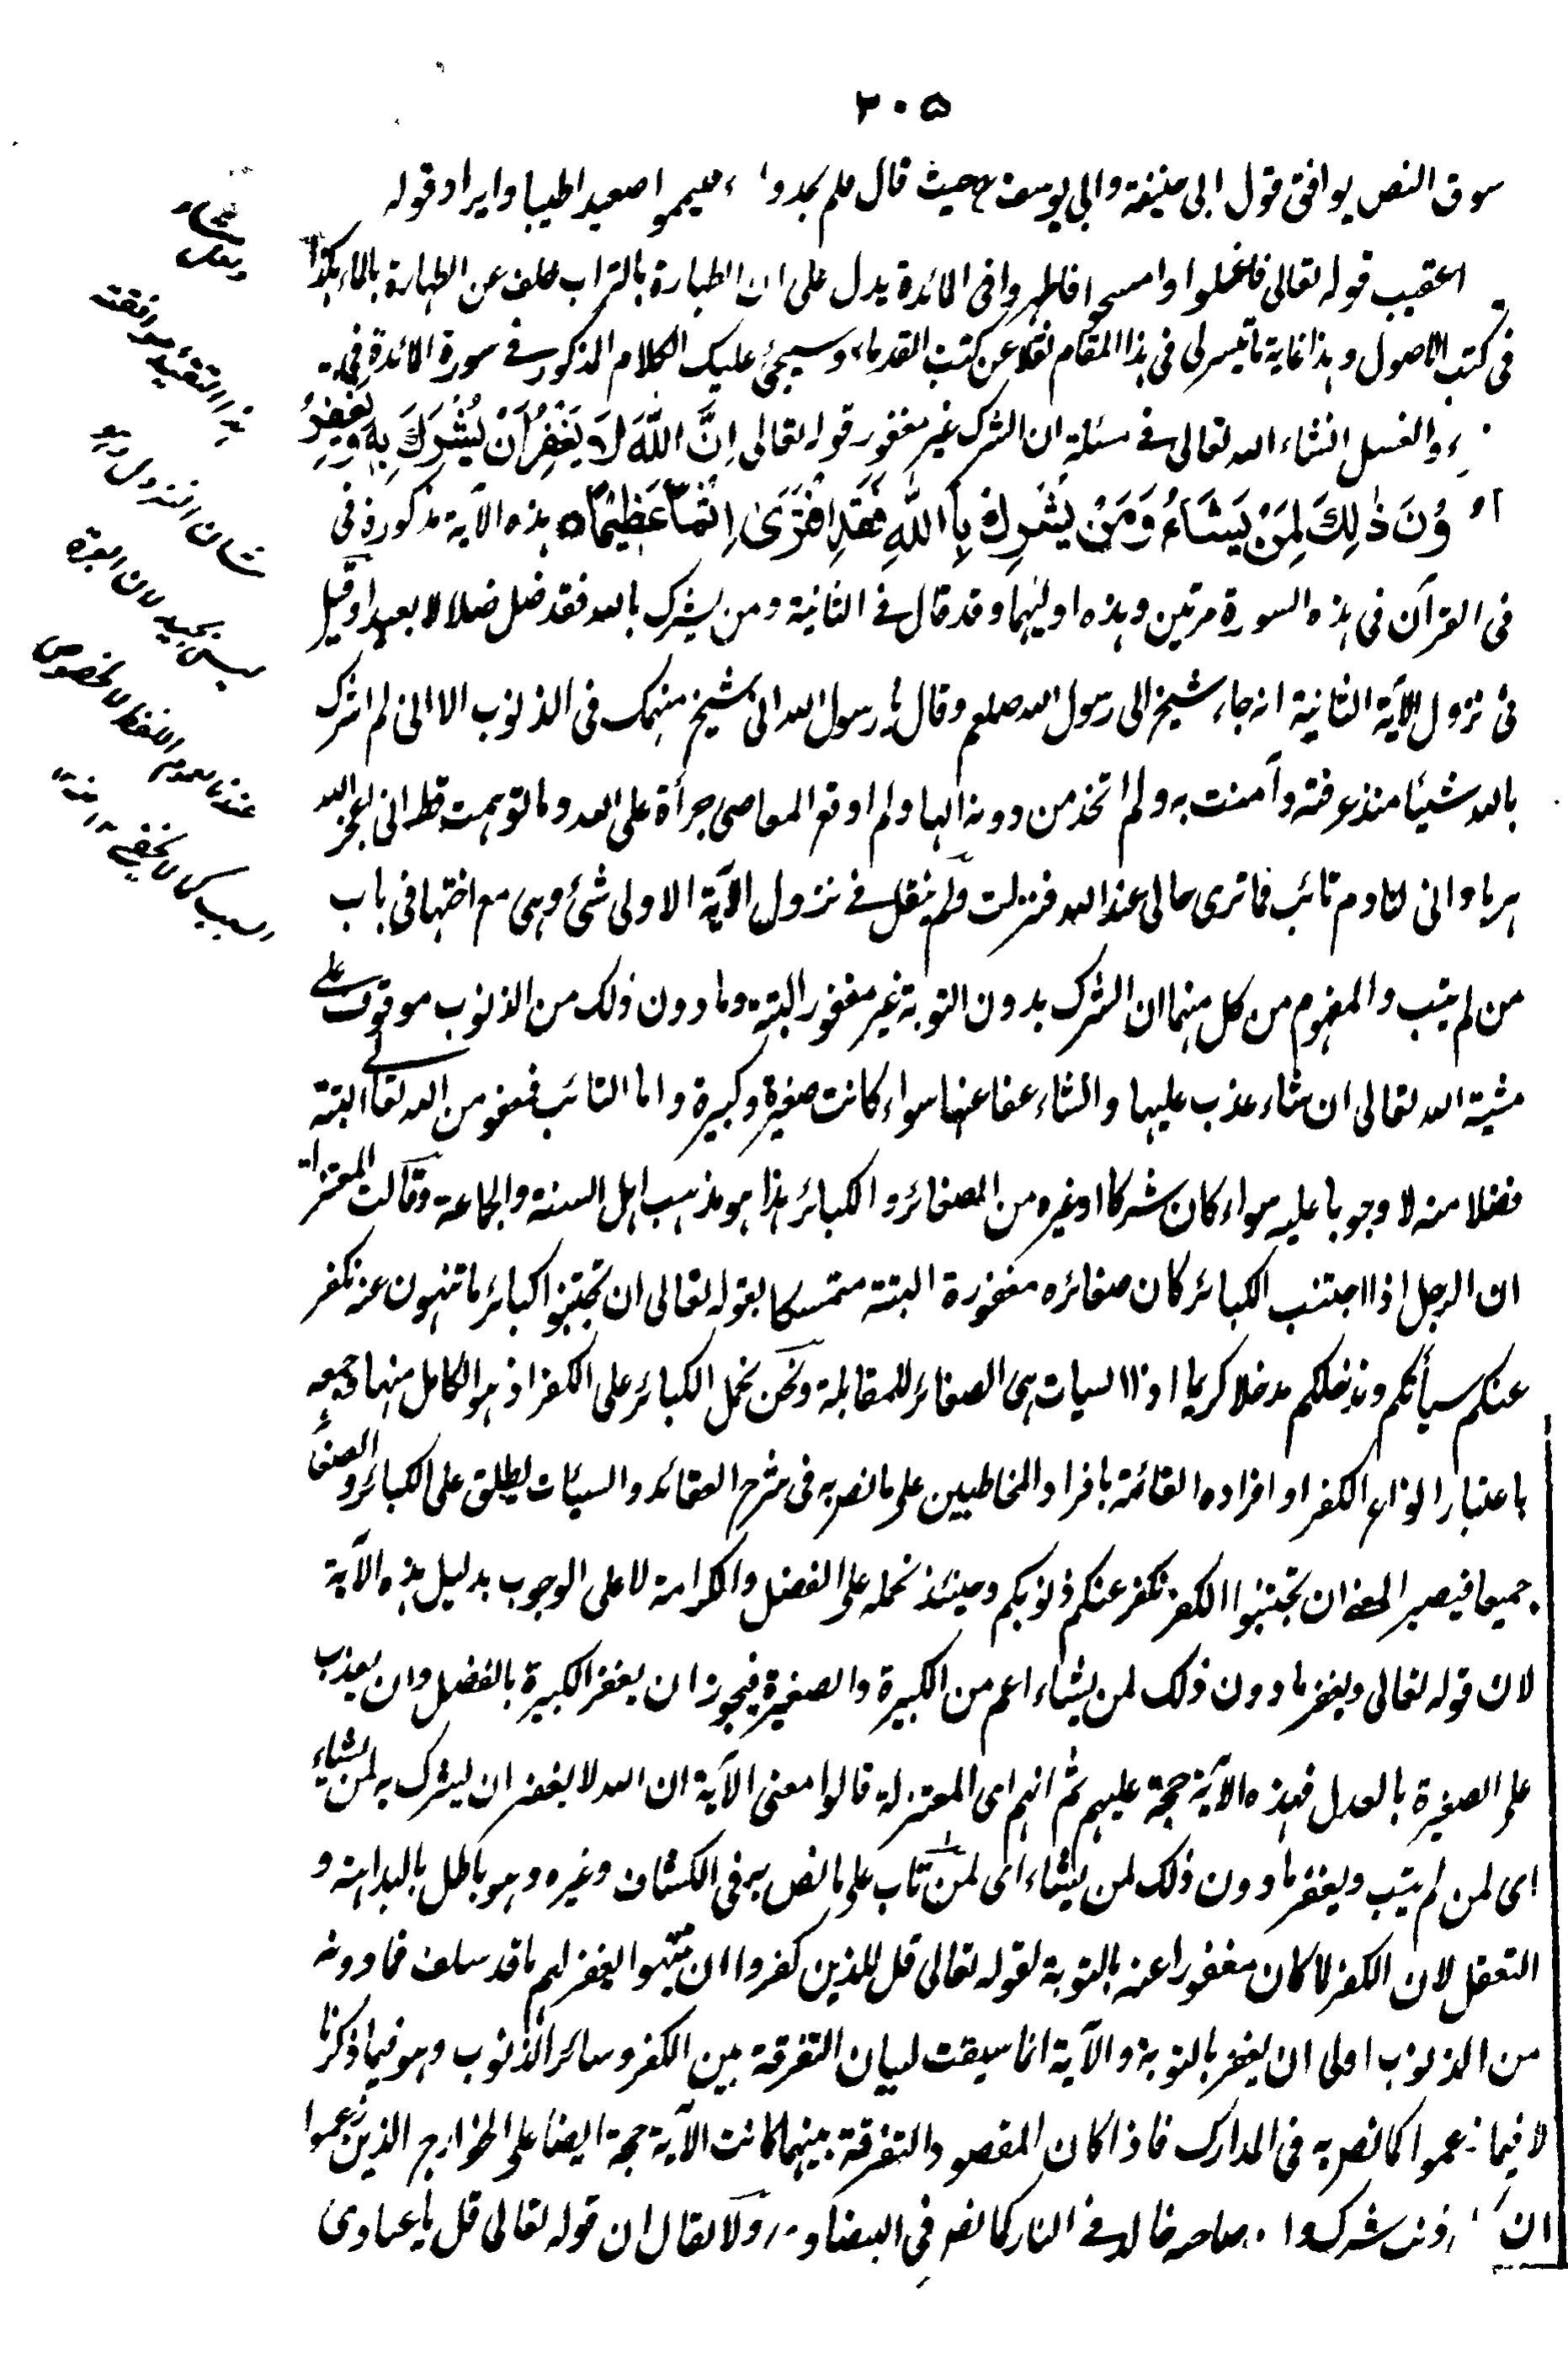 ٢٠٥
سوق النص يوافق قول ابى حنيفة وابى يوسف رح حيث قال فلم تجدوا ماء فتيمموا صعيدا طيبا وايراد قوله
عقيب قوله تعالى فاغسلوا وامسحوا فاطهروا فى المائدة يدل على ان الطهارة بالتراب خلف عن الطهارة بالماء هكذا
فى كتب الاصول وهذا غاية ما تيسر لى فى هذا المقام نقلا عن كتب القدماء وسيجئ عليك الكلام المذكور فى سورة المائدة فى
والغسل انشاء الله تعالى فى مسئلة ان الشرك غير مغفور قوله تعالى اِنَّ اللّٰهَ لَا يَغْفِرُ اَنْ يُّشْرَكَ بِهٖ وَيَغْفِرُ
مَا دُوْنَ ذٰلِكَ لِمَنْ يَّشَاءُ وَمَنْ يُّشْرِكْ بِاللّٰهِ فَقَدِ افْتَرٰى اِثْمًا عَظِيْمًا ه هذه الآية مذكورة فى
فى القرآن فى هذه السورة مرتين وهذه اوليهما وقد قال فى الثانية ومن يشرك بالله فقد ضل ضلالا بعيدا وقيل
فى نزول الآية الثانية انه جاء شيخ الى رسول الله صلعم وقال يا رسول الله انى شيخ منهمك فى الذنوب الا انى لم اشرك
بالله شيئا منذ عرفته وآمنت به ولم اتخذ من دونه الها ولم اوقع المعاصى جرأة على الله وما توهمت قط انى اعجز الله
هربا وانى نادم تائب فما ترى حالى عند الله فنزلت ولم ينقل فى نزول الآية الاولى شئ وهى مع اختها فى باب
من لم يتب والمفهوم من كل منهما ان الشرك بدون التوبة غير مغفور البتة وما دون ذلك من الذنوب موقوف على
مشية الله تعالى ان شاء عذب عليها وان شاء عفا عنها سواء كانت صغيرة وكبيرة واما التائب فمعفو من الله تعالى البتة
فضلا منه لا وجوبا عليه سواء كان شركا او غيره من الصغائر والكبائر هذا هو مذهب اهل السنة والجماعة وقالت المعتزلة
ان الرجل اذا اجتنب الكبائر كان صغائره مغفورة البتة متمسكا بقوله تعالى ان تجتنبوا كبائر ما تنهون عنه نكفر
عنكم سيأتكم وندخلكم مدخلا كريما اذ السيات هى الصغائر للمقابلة ونحن نحمل الكبائر على الكفر اذ هو الكامل منها وجمعه
باعتبار انواع الكفر او افراده القائمة بافراد المخاطبين على ما نص به فى شرح العقائد والسيئات يطلق على الكبائر والصغائر
جميعا فيصير المعنى ان تجتنبوا الكفر نكفر عنكم ذنوبكم وحينئذ نحمله على الفضل والكرامة لا على الوجوب بدليل هذه الآية
لان قوله تعالى ويغفر ما دون ذلك لمن يشاء اعم من الكبيرة والصغيرة فيجوز ان يغفر الكبيرة بالفضل وان يعذب
على الصغيرة بالعدل فهذه الآية حجة عليهم ثم انهم اى المعتزلة قالوا معنى الآية ان الله لا يغفر ان يشرك به لمن يشاء
اى لمن لم يتب ويغفر ما دون ذلك لمن يشاء اى لمن تاب على ما نص به فى الكشاف وغيره وهو باطل بالبداهة و
التعقل لان الكفر لما كان مغفورا عنه بالتوبة لقوله تعالى قل للذين كفروا ان ينتهوا يغفر لهم ما قد سلف فما دونه
من الذنوب اولى ان يغفر بالتوبة والآية انما سيقت لبيان التفرقة بين الكفر وسائر الذنوب وهو فيما ذكرنا
لا فيما زعموا كما نص به فى المدارك فاذا كان المقصود التفرقة بينهما كانت الآية حجة ايضا على الخوارج الذين زعموا
ان ذنب شرك صاحبه خالد فى النار كما نص فى البيضاوى ولا يقال ان قوله تعالى قل يا عبادى
هذا التقييد موافقته
شان النزول
ليس بجيد لان العبرة
عندنا لعموم اللفظ لا لخصوص
السبب كما لا يخفى منه